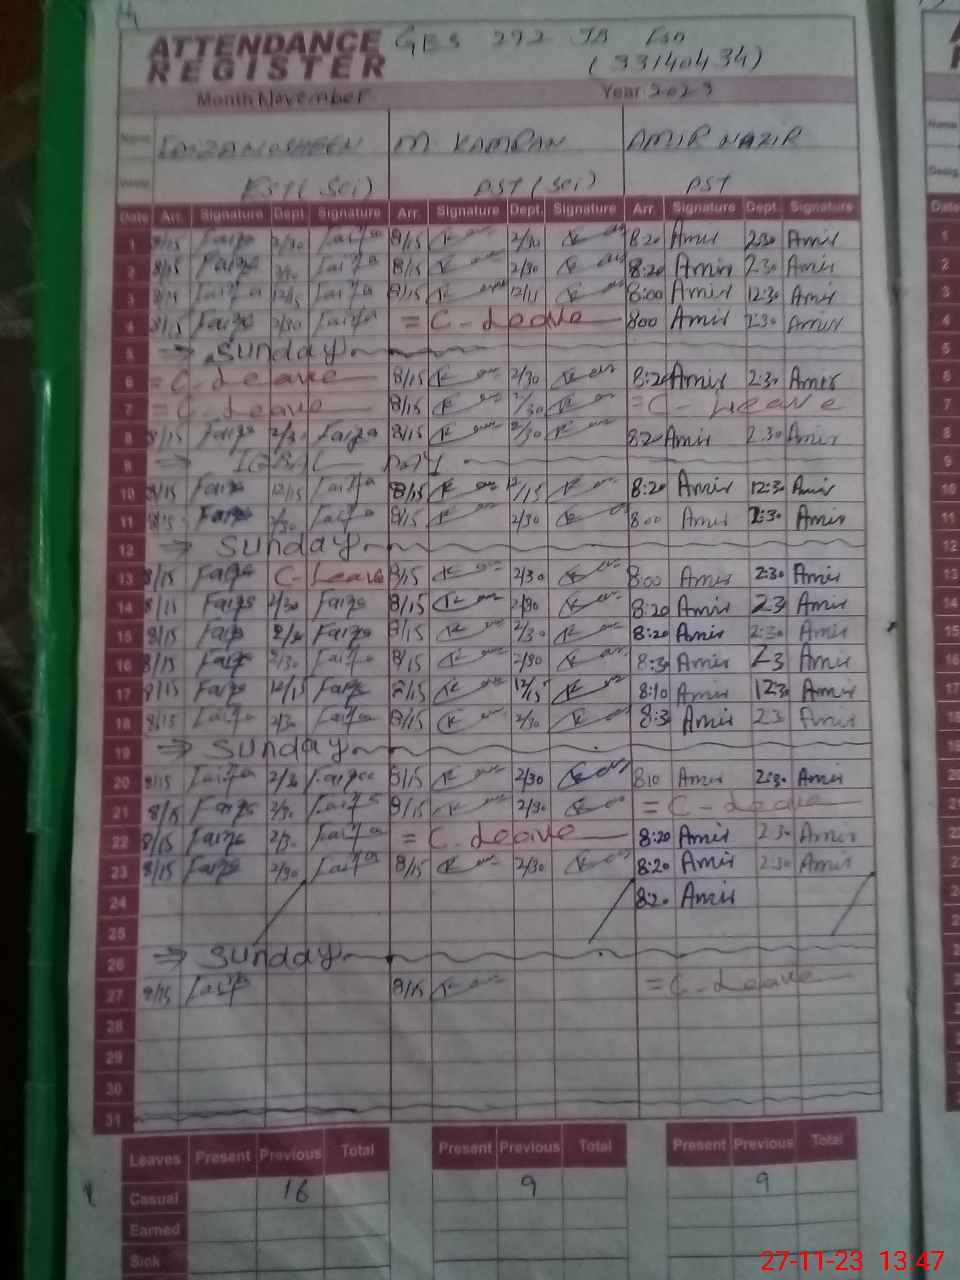 ATTENDANCE REGISTER GES 272 JB FSD
(33140434)
Month November Year 2023
Name FAIZA NOSHEEN M. KAMRAN AMIR NAZIR
EST (Sci) PST (Sci) PST
Date Arr. Signature Dept. Signature Arr. Signature Dept. Signature Arr. Signature Dept. Signature
1 8/15 Faiza 2/30 Faiza 8/15 2/30 8:20 Amir 2:30 Amir
2 8/15 Faiza 2/30 Faiza 8/15 2/30 8:20 Amir 2:30 Amir
3 8/15 Faiza 12/15 Faiza 8/15 12/15 8:00 Amir 12:30 Amir
4 8/15 Faiza 2/30 Faiza = C-Leave 800 Amir 2:30 Amir
5 → Sunday
6 = C-Leave 8/15 2/30 8:20 Amir 2:30 Amir
7 = C-Leave 8/15 2/30 = C-Leave
8 8/15 Faiza 2/30 Faiza 8/15 2/30 820 Amir 2:30 Amir
9 → IQBAL DAY
10 8/15 Faiza 12/15 Faiza 8/15 12/15 8:20 Amir 12:30 Amir
11 8/15 Faiza 2/30 Faiza 8/15 2/30 800 Amir 2:30 Amir
12 → Sunday
13 8/15 Faiza C-Leave 8/15 2/30 800 Amir 2:30 Amir
14 8/15 Faiza 2/30 Faiza 8/15 2/30 8:20 Amir 23 Amir
15 8/15 Faiza Faiza 8/15 2/30 8:20 Amir 2:30 Amir
16 8/15 Faiza 2/30 Faiza 8/15 2/30 8:30 Amir 23 Amir
17 8/15 Faiza 12/15 Faiza 8/15 12/15 8:10 Amir 123 Amir
18 8/15 Faiza 2/30 Faiza 8/15 2/30 8:30 Amir 23 Amir
19 → Sunday
20 8/15 Faiza 2/30 Faiza 8/15 2/30 810 Amir 2:30 Amir
21 8/15 Faiza 2/30 Faiza 8/15 2/30 = C-Leave
22 8/15 Faiza 2/30 Faiza = C-Leave 8:20 Amir 2:30 Amir
23 8/15 Faiza 2/30 Faiza 8/15 2/30 8:20 Amir 2:30 Amir
24 8:20 Amir
25
26 → Sunday
27 8/15 Faiza 8/15 = C-Leave
28
29
30
31
Leaves Present Previous Total Present Previous Total Present Previous Total
Casual 16 9 9
Earned
Sick
27-11-23 13:47